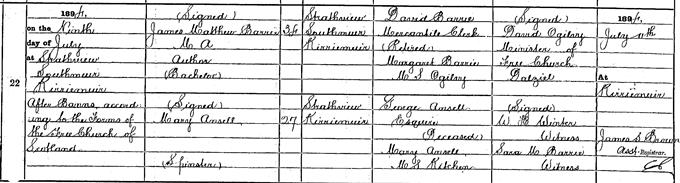 1894, (Signed) Strathview David Barrie (Signed) 1894,
on the Ninth James Matthew Barrie 34 Southmuir Mercantile Clerk David Ogilvy July 11th
day of July M.A. Kirriemuir (Retired) Minister of
at Strathview Author Margaret Barrie Free Church
Southmuir (Bachelor) M.S. Ogilvy Dalziel At
22 Kirriemuir Kirriemuir
After Banns, accord- (Signed) Strathview George Ansell (Signed)
ing to the Forms of Mary Ansell 27 Kirriemuir Esquire W Winter
the Free Church of (Deceased) Witness James S Brown
Scotland. Mary Ansell Sara M. Barrie Asst. Registrar.
(Spinster) M.S. Kitchen Witness